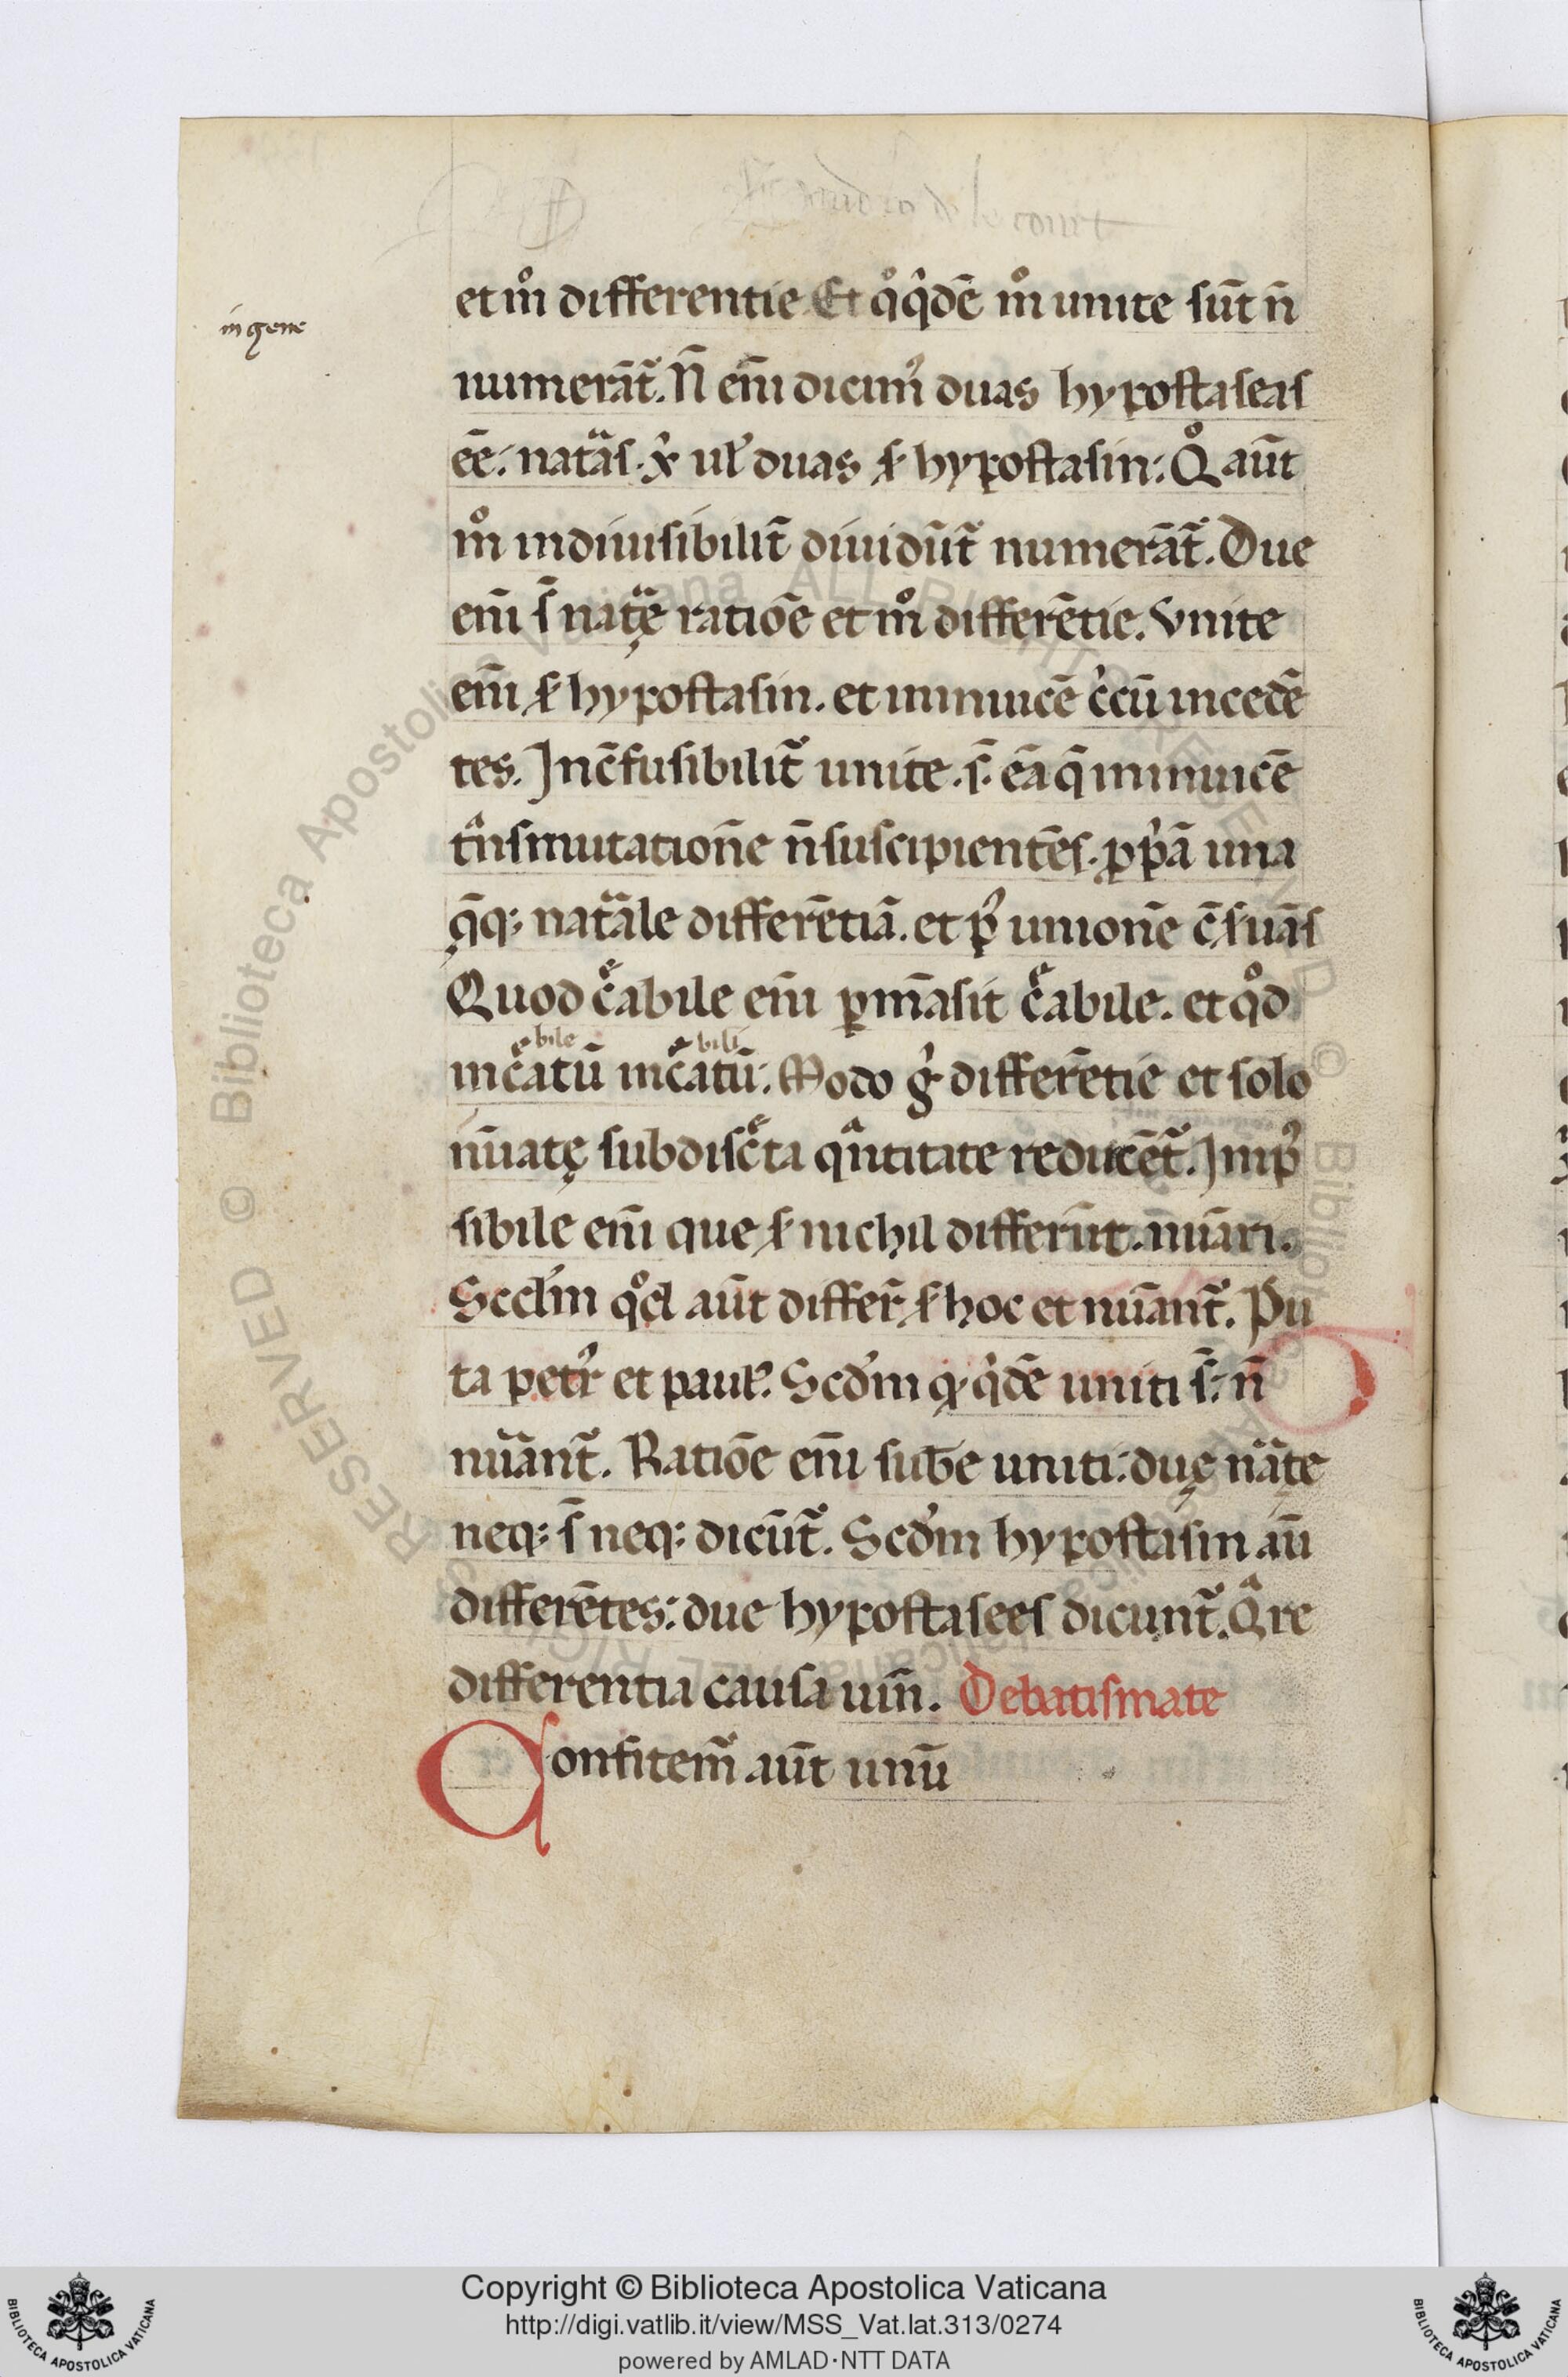 in gene
et mͦ differentie Et qͦ q̇dē mͦ unite sūt n̄
numerāt᷑. N̄ em̄ dicim᷒ duas hypostaseas
ēē: natᷓas. xͥ ul᷒ duas ẜ hypostasin: Qͦ aūt
mͦ indiuisibilit᷑ diuidūt᷑ numerāt᷑. Due
em̄ s̄ natᷓę ratiōe et mͦ differētie. Vnite
em̄ ẜ hypostasin. et ininuicē c̍cū incedē
tes. Inc̄fusibilit᷑ unite. s̄. ēā q̄ in inuicē
tᷓnsmutationē n̄ suscipientēs. ꝓpͥā una
q̄q; natᷓale differētiā. et p᷒ unionē c̄ẜuās
Quod cͤabile em̄ ꝑmāsit cͤabile. et qͦd
incͤatū incͤatū: Modo gͥ differētie et solo
bile bili
nūatę subdiscͤta qᷓntitate reducēt᷑. Inp᷒
sibile em̄ que ẜ nichil differūt. nūari.
Scd̓m qͦd aūt differ̄ ẜ hoc et nūant᷑. Pu
ta petr᷒ et paul᷒. Scd̓m ꝙ q̇dē uniti s̄: n̄
nūant᷑. Ratiōe em̄ sub̄e uniti: duę natᷓe
neq; s̄ neq; dicūt᷑. Scd̓m hypostasin aū
differētes: due hypostasees dicunt᷑. Qᷓre
differentia causa um̄. De batismate
Confitem᷑ aūt unū
Copyright © Biblioteca Apostolica Vaticana
http://digi.vatlib.it/view/MSS_Vat.lat.313/0274
powered by AMLAD·NTT DATA
BIBLIOTECA APOSTOLICA VATICANA
BIBLIOTECA APOSTOLICA VATICANA